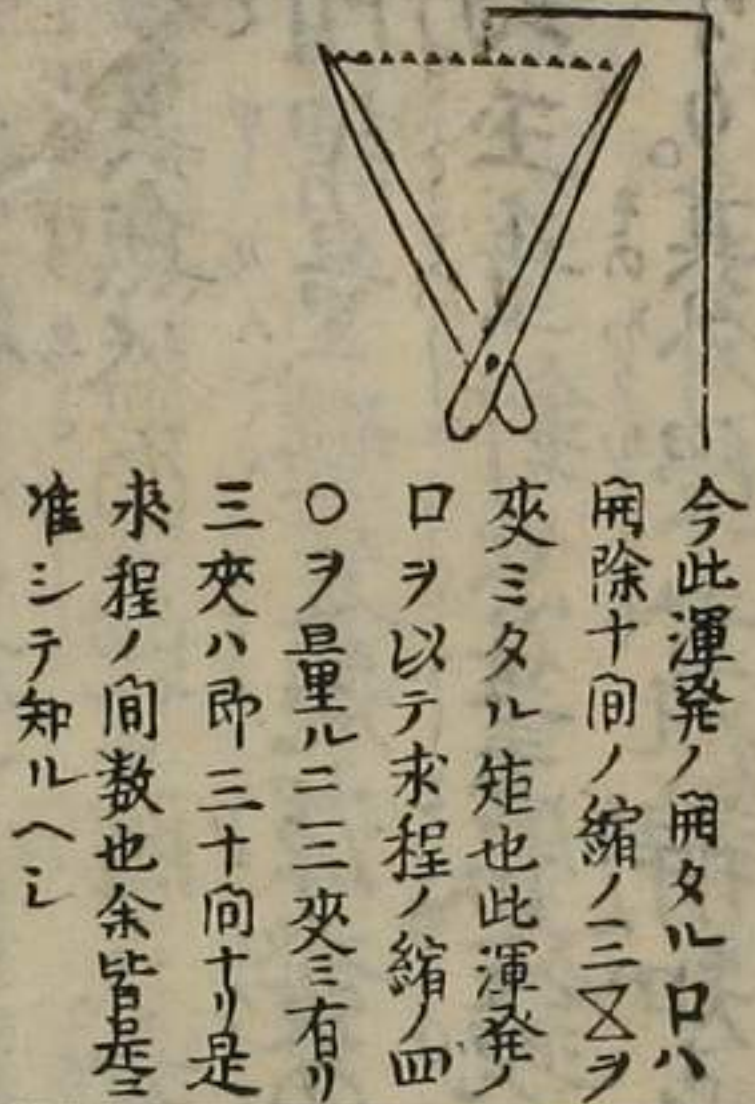 今此渾発ノ開タル口ハ
開除十間ノ縮ノ三〆ヲ
夾ミタル矩也此渾発ノ
口ヲ以テ求程ノ縮ノ四
〇ヲ量ルニ三夾ミ有リ
三夾ハ即三十間ナリ是
求程ノ間数也余皆是ニ
准シテ知ルヘシ